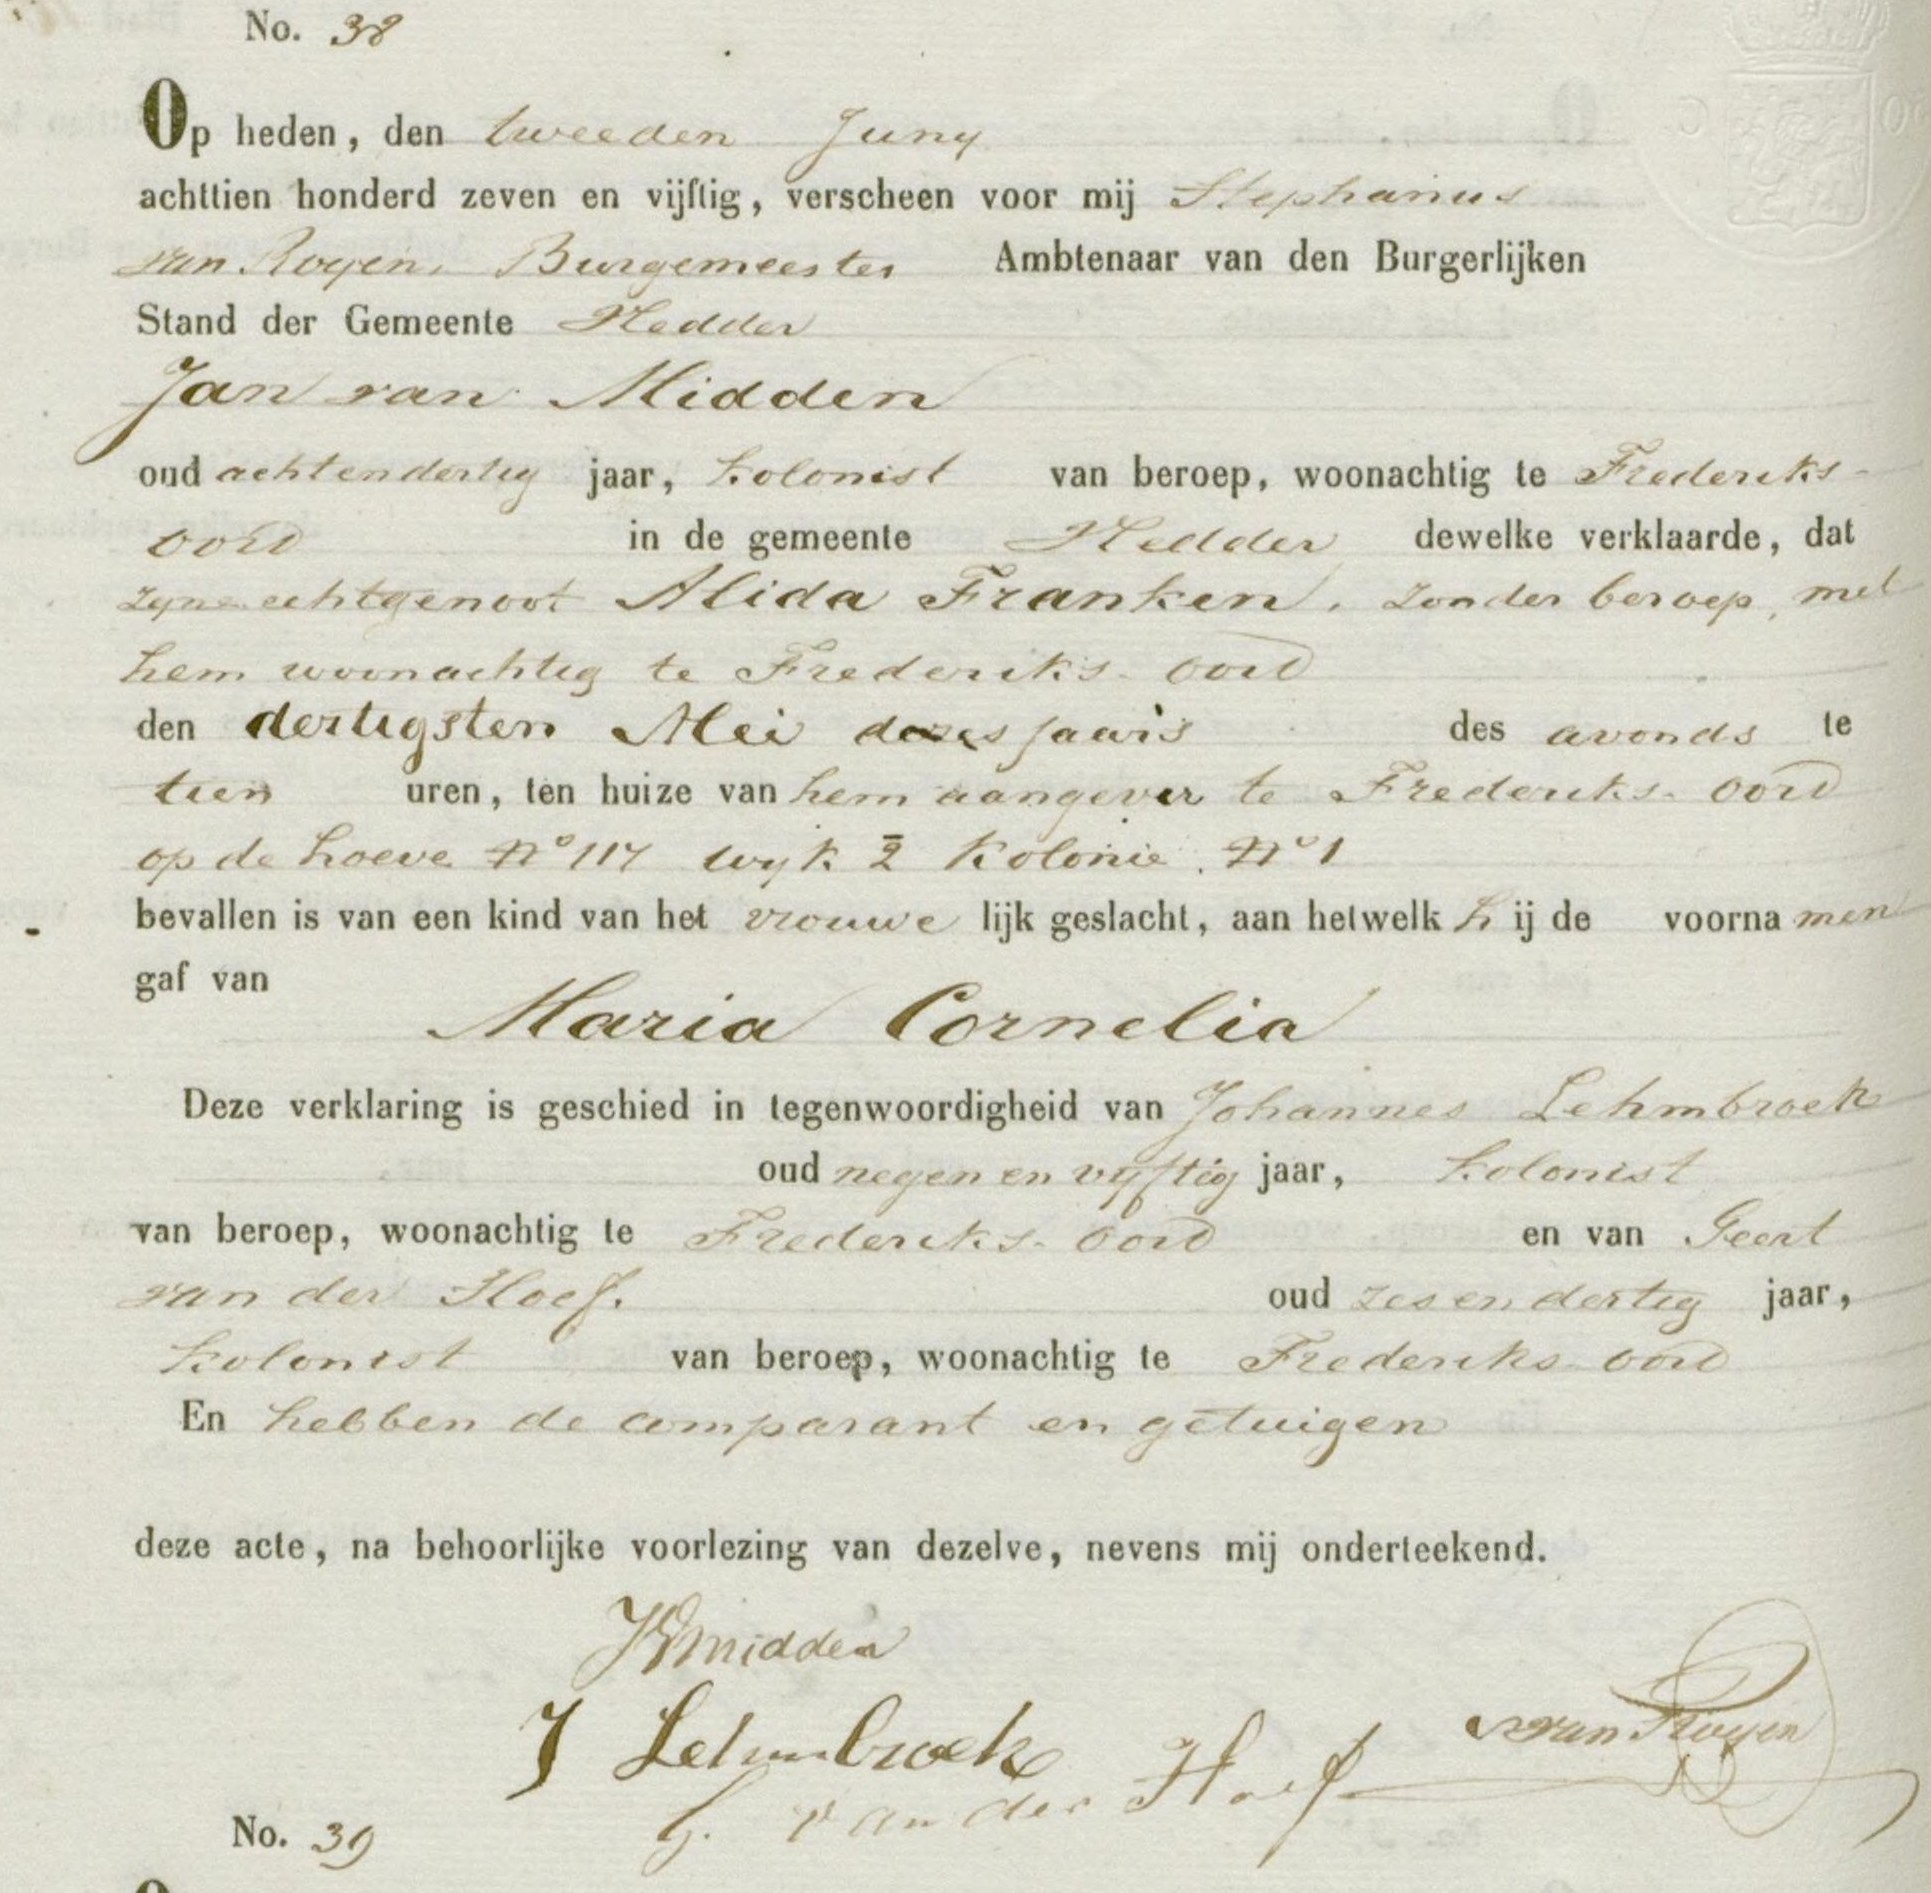 No. 38
Op heden, den tweeden Juny
achttien honderd zeven en vijftig, verscheen voor mij Stephanus
van Royen, Burgemeester Ambtenaar van den Burgerlijken
Stand der Gemeente Vledder
Jan van Midden
oud achtendertig jaar, kolonist van beroep, woonachtig te Frederiks-
oord in de gemeente Vledder dewelke verklaarde, dat
zyne echtgenoot Alida Franken, zonder beroep, met
hem woonachtig te Frederiks-oord
den dertigsten Mei dezes jaars des avonds te
tien uren, ten huize van hem aangever te Frederiks-oord
op de hoeve No 117 wyk 2 Kolonie No 1
bevallen is van een kind van het vrouwelijk geslacht, aan hetwelk hij de voornamen
gaf van
Maria Cornelia
Deze verklaring is geschied in tegenwoordigheid van Johannes Lehmbroek
oud negen en vyftig jaar, kolonist
van beroep, woonachtig te Frederiks-oord en van Geert
van der Hoef, oud zes en dertig jaar,
kolonist van beroep, woonachtig te Frederiks-oord
En hebben de comparant en getuigen
deze acte, na behoorlijke voorlezing van dezelve, nevens mij onderteekend.
JVmidden
J Lehmbroek
van Royen
G. van der Hoef
No. 39